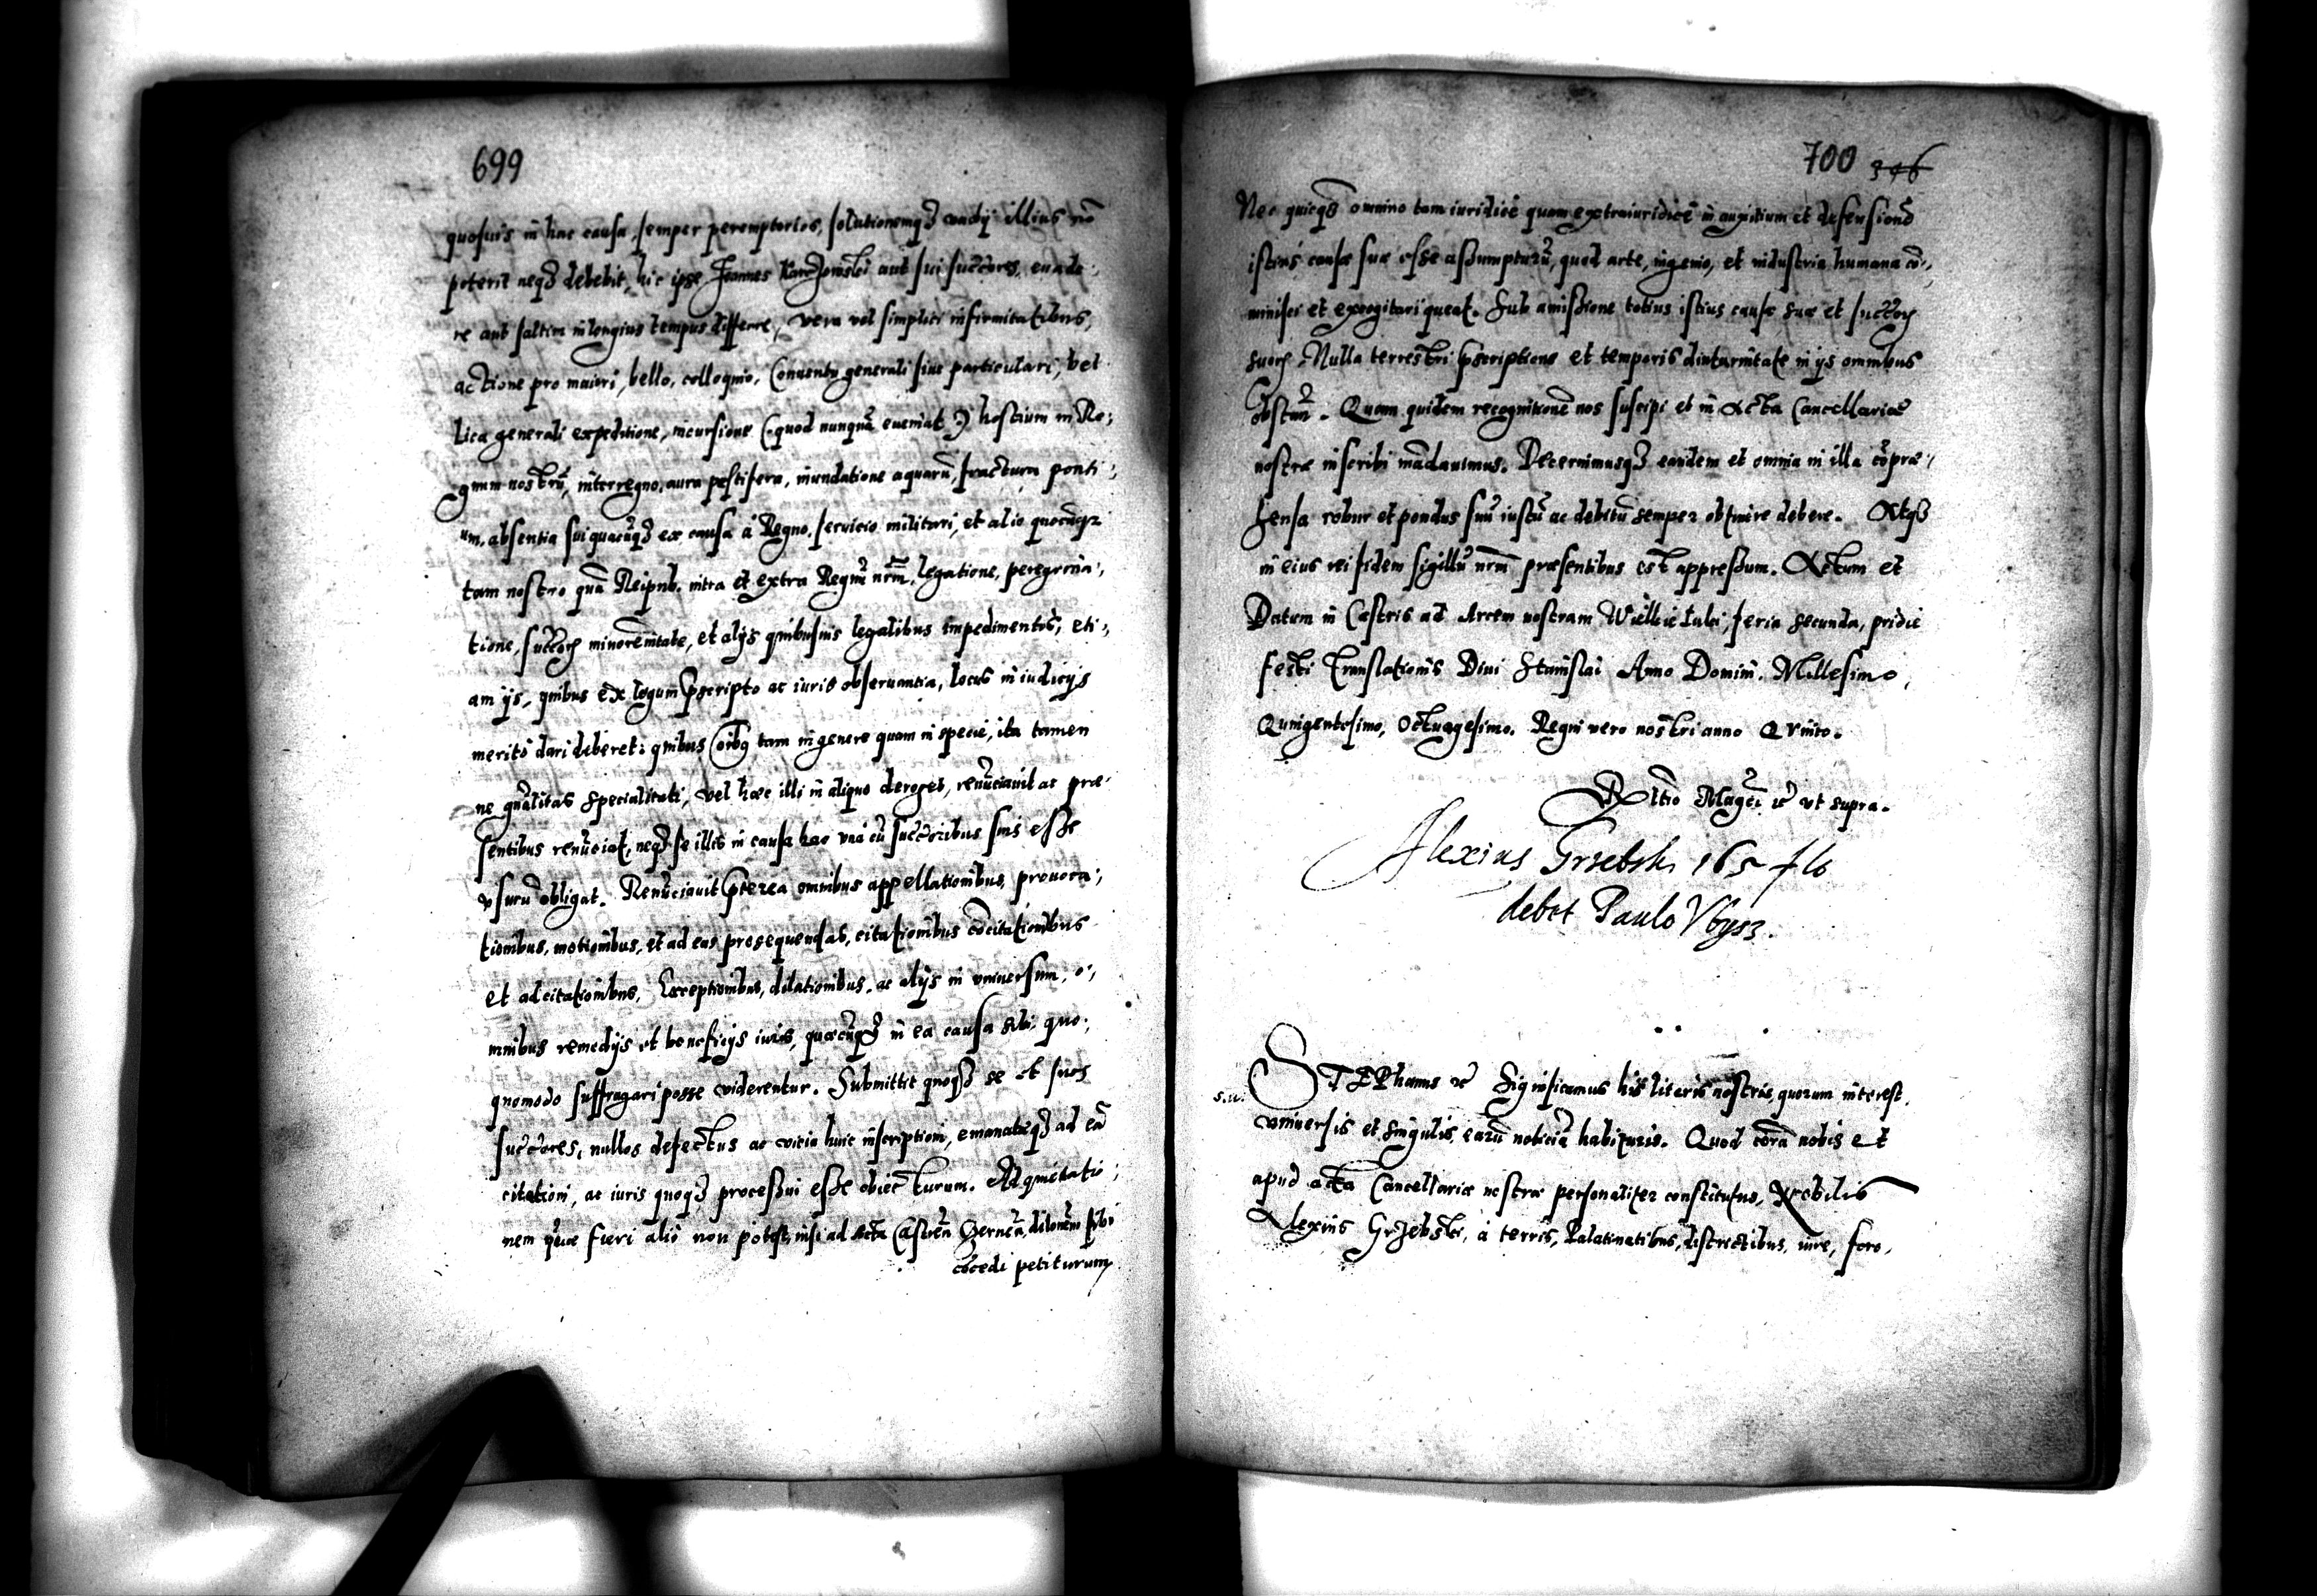 699
quosuis in hac causa, semper peremptorios, solutionemq3 vadij illius nō
poterit neq3 debebit, hic ipse Joannes aut sui succōres, euade,
re aut saltim in longius tempus differre, vera vel simplici infirmitatibus,
actione pro maiori, bello, colloquio, Conuentu generali siue particulari, bel
lica generali expeditione, incursione (quod nunquā eueniat) hostium in Re,
gnum nostrū, interregno, aura pestifera, inundatione aquarū, fractura ponti,
um, absentia sui quacūq3 ex causa à Regno, seruicio militari, et alio quocūq3
tam nostro quā Reipub. intra et extra Regnū nrm̄, legatione, peregrina,
tione, succōrū minorennitate, et alijs quibusuis legalibus impedimentis, eti,
am ijs, quibus ex legum pscripto ac iuris obseruantia, locus in iudicijs
meritò dari deberet: quibus oībq tam in genere quam in specie, ita tamen
ne gn̄alitas specialitati, vel hæc illi in aliquo deroget, renūciauit ac præ,
sentibus renūciat, neq3 se illis in causa hac vnā cū succōribus suis esse
vsurū obligat. Renūciauit pterea omnibus appellationibus, prouoca,
tionibus, motionibus, et ad eas prosequendas, citationibus cōcitationibus
et adcitationibus, Exceptionibus, dilationibus, ac alijs in vniuersum, o,
mnibus remedijs et beneficijs iuris, quæcūq3 in ea causa sibi quo,
quomodo suffragari posse viderentur. Submittit quoq3 se et suos
succōres, nullos defectus ac vitia huic inscriptioni, emanatæq3 ad eā
citationi, ac iuris quoq3 processui esse obiecturum. Ad quietatio,
nem quæ fieri aliò non potest, nisi ad Acta Castren̄ dilationem sibi
cōcedi petiturum
700 346
Nec quicq3 omnino tam iuridicè quam extraiuridicè in auxilium et defensionē
istius causæ suæ esse assumpturū, quod arte, ingenio, et industria humana cō,
minisci et excogitari queat. Sub amissione totius istius causæ suæ et succōrū
suorū. Nulla terrestri pscriptione et temporis diuturnitate in ijs omnibus
obstan̄. Quam quidem recognitionē nos suscipi et in Acta Cancellariæ
nostræ inscribi mādauimus. Decernimusq3 eandem et omnia in illa cōpræ,
hensa robur et pondus suū iustū ac debitū semper obtinere debere. Atq3
in eius rei fidem sigillū nrm̄ præsentibus est appressum. Actum et
Datum in Castris ad Arcem nostram Wielkie Luki, feria secunda, pridie
festi Translationis Diui Stanislai Anno Domini. Millesimo,
Quingentesimo, Octuagesimo. Regni vero nostri anno Qvinto.
Rltio Magci &c vt supra.
Alexius Grzebski 165 flo
debet Paulo Vbysz.
STEPhanus &c Significamus his literis nostris, quorum interest,
vniuersis et singulis, earū noticiā habituris. Quod corā nobis et
apud acta Cancellariæ nostræ personaliter constitutus, Nobilis
Alexius Grzebski, à terris, Palatinatibus, districtibus, iure, foro,